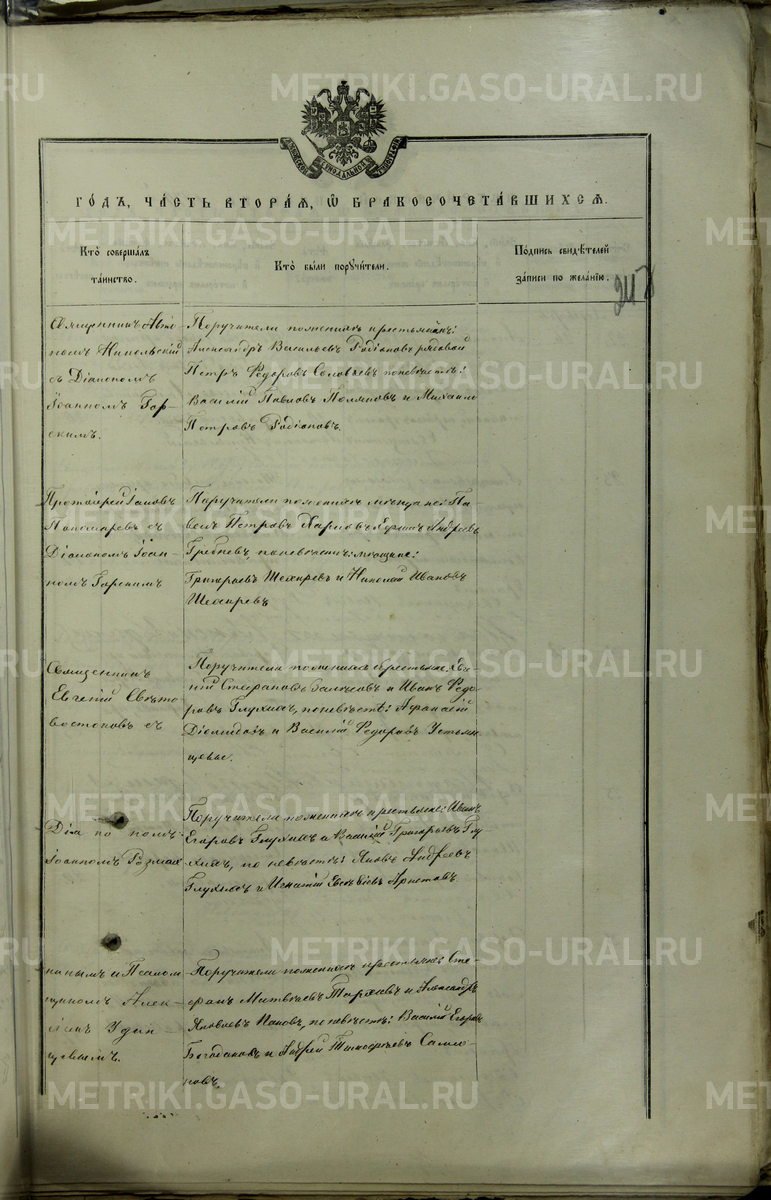 METRIKI.GASO-URAL.RU
ГО́ДЪ, ЧА́СТЬ ВТОРА́Я, Ѡ БРАКОСОЧЕТА́ВШИХСЯ.
Кто̀ соверша́лъ
та́инство.
Кто̀ бы́ли порꙋчи́тели.
По́дпись свидѣ́телей
за́писи по жела́нїю.
Священникъ Авто
номъ Никольскій
съ Діакономъ
Іоанномъ Гор-
скимъ.
Поручители по женихѣ крестьяне:
Александръ Васильевъ Родіоновъ рядовой
Петръ Ѳедоровъ Соловьевъ по невѣстѣ:
Василій Павловъ Поляковъ и Михаилъ
Петровъ Родіоновъ.
Протоіерей Іаковъ
Пономаревъ съ
Діакономъ Іоан-
номъ Горскимъ
Поручители по женихѣ мѣщане: Па-
велъ Петровъ Карповъ Андреевъ
Гребневъ, по невѣстѣ: мѣщане:
и Николай Ивановъ
Священникъ
Евгеній Свѣто
востоковъ съ
Поручители по женихѣ крестьяне: Ев-
ній Стефановъ и Иванъ Ѳедо
ровъ Глухихъ, по невѣстѣ: Афанасій
Діомидовъ и Василій Ѳедоровъ Устьян
цевы.
Діа ко номъ
Іоанномъ
Поручители по женихѣ крестьяне: Иванъ
Егоровъ Глухихъ и Василій Григорьевъ Глу
хихъ, по невѣстѣ: Яковъ Андреевъ
Глухихъ и Игнатій Евсѣвіевъ Аристовъ.
нинымъ и Псалом
щикомъ Алек-
Удин
цевымъ.
Поручители по женихѣ крестьяне: Сте-
фанъ Матвѣевъ и Александръ
Яковлевъ Пановъ, по невѣстѣ: Василій Егоровъ
Богдановъ и Андрей Тимофѣевъ Самсо
новъ.